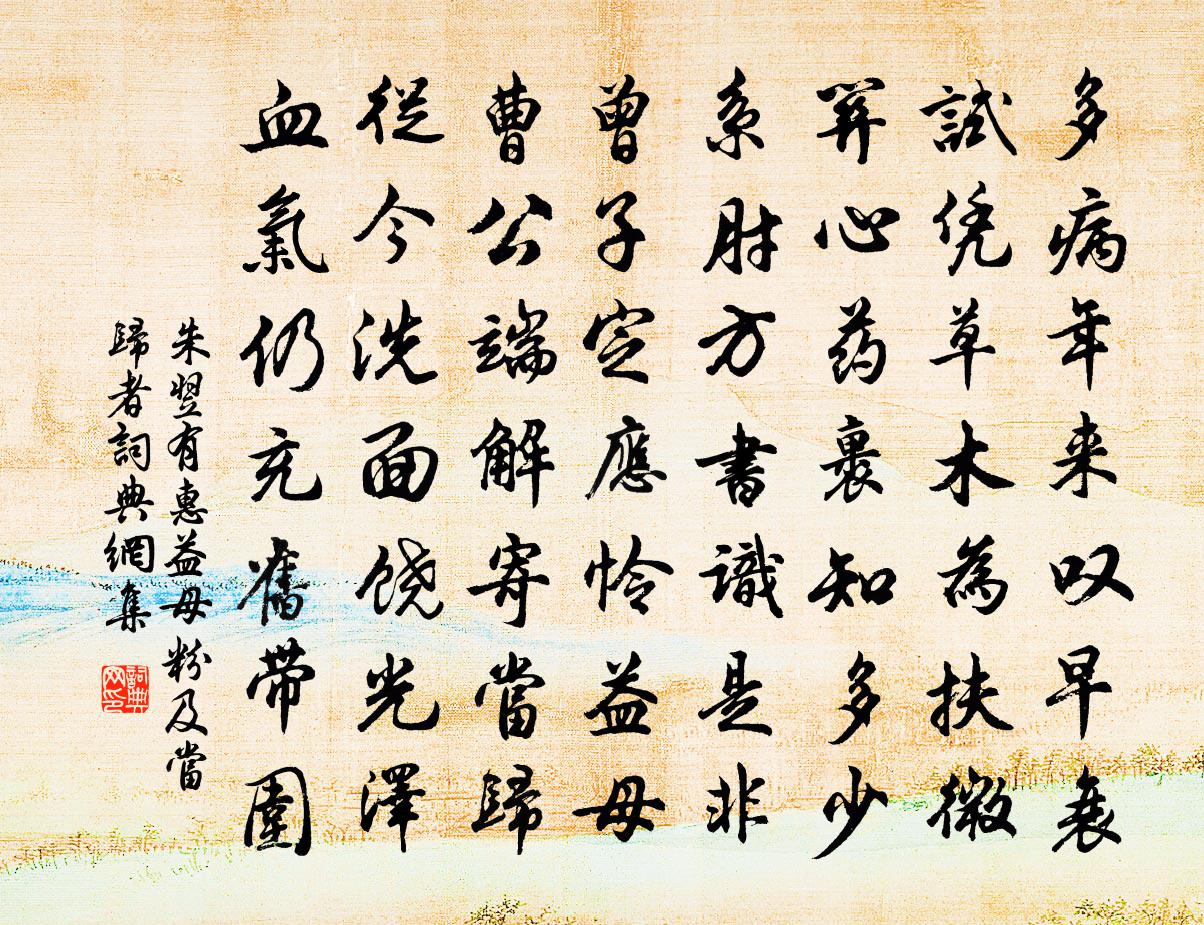 多病年来叹早衰
試凭草木為扶微
關心药裹知多少
系肘方書識是非
曾子定應怜益母
曹公端解寄當歸
從今洗面饶光澤
血氣仍充舊帶圍
朱翌有惠益母粉及當
歸者詞典網集
詞典
网印